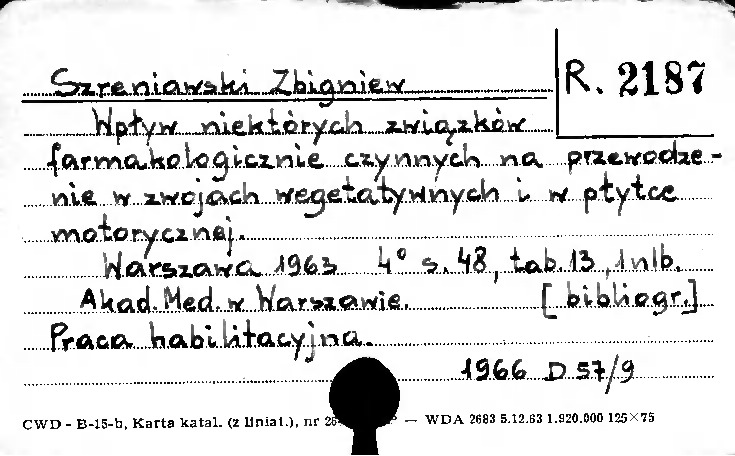 Szreniawski Zbigniew
R. 2187
Wpływ niektórych związków
farmakologicznie czynnych na przewodze-
nie w zwojach wegetatywnych i w płytce
motorycznej.
Warszawa 1963 4° s. 48, tab. 13, 1 nlb.
Akad. Med. w Warszawie. [bibliogr.]
Praca habilitacyjna.
1966 D 57/9
CWD - B-15-b, Karta katal. (z liniat.), nr — WDA 2683 5.12.63 1.920.000 125×75